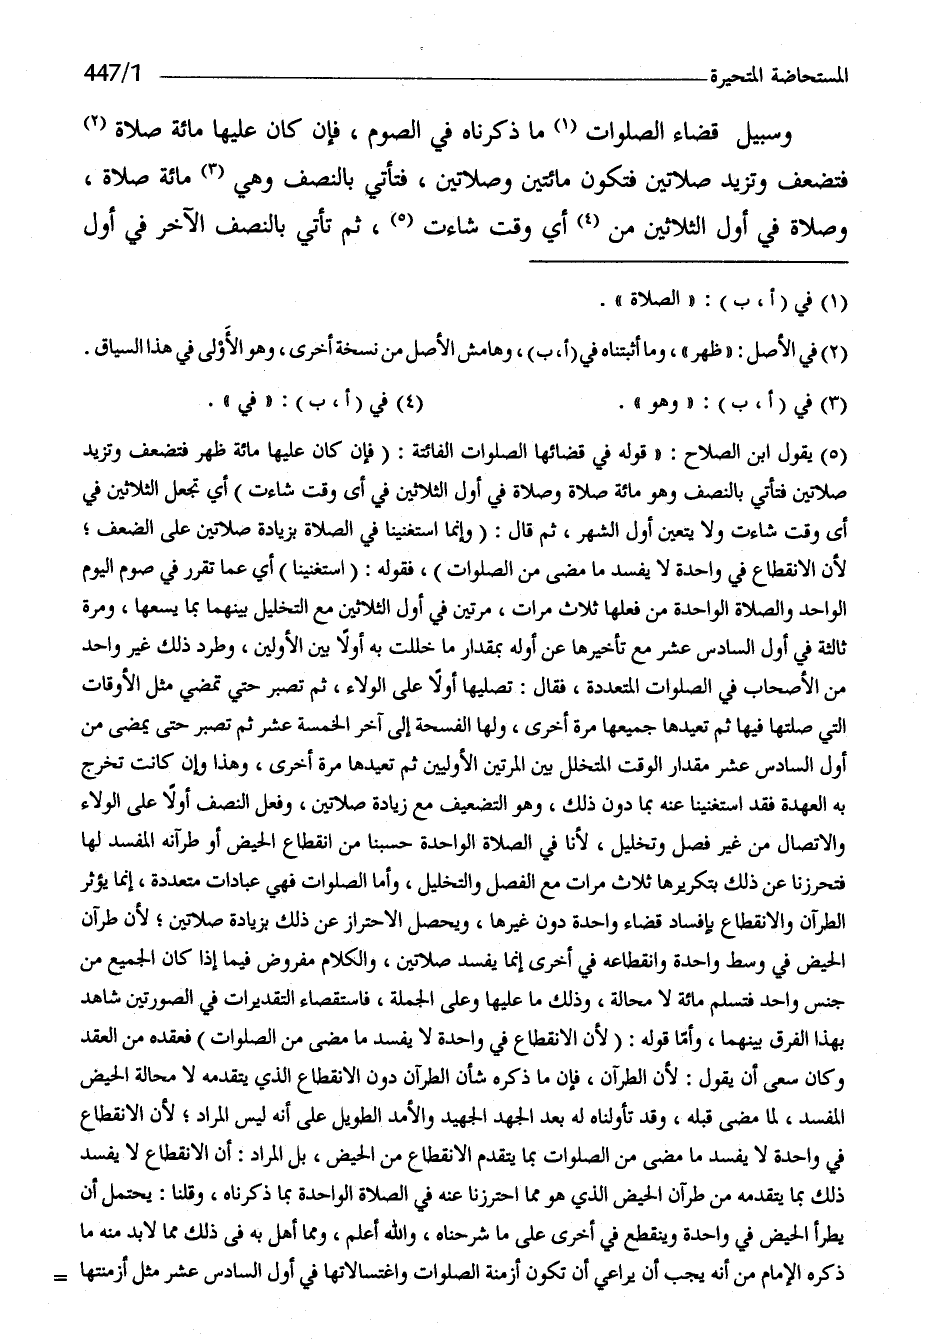 المستحاضة المتحيرة 447/1
وسبيل قضاء الصلوات (١) ما ذكرناه في الصوم ، فإن كان عليها مائة صلاة (٢)
فتضعف وتزيد صلاتين فتكون مائتين وصلاتين ، فتأتي بالنصف وهي (٣) مائة صلاة ،
وصلاة في أول الثلاثين من (٤) أي وقت شاءت (٥) ، ثم تأتي بالنصف الآخر في أول
(١) في ( أ ، ب ) : « الصلاة » .
(٢) في الأصل : « ظهر » ، وما أثبتناه في (أ، ب) ، وهامش الأصل من نسخة أخرى ، وهو الأَوْلى في هذا السياق .
(٣) في ( أ ، ب ) : « وهو » . (٤) في ( أ ، ب ) : « في » .
(٥) يقول ابن الصلاح : « قوله في قضائها الصلوات الفائتة : ( فإن كان عليها مائة ظهر فتضعف وتزيد
صلاتين فتأتي بالنصف وهو مائة صلاة وصلاة في أول الثلاثين في أى وقت شاءت ) أي تجعل الثلاثين في
أى وقت شاءت ولا يتعين أول الشهر ، ثم قال : ( وإنما استغنينا في الصلاة بزيادة صلاتين على الضعف ؛
لأن الانقطاع في واحدة لا يفسد ما مضى من الصلوات ) ، فقوله : ( استغنينا ) أي عما تقرر في صوم اليوم
الواحد والصلاة الواحدة من فعلها ثلاث مرات ، مرتين في أول الثلاثين مع التخليل بينهما بما يسعها ، ومرة
ثالثة في أول السادس عشر مع تأخيرها عن أوله بمقدار ما خللت به أولًا بين الأولين ، وطرد ذلك غير واحد
من الأصحاب في الصلوات المتعددة ، فقال : تصليها أولًا على الولاء ، ثم تصبر حتي تمضي مثل الأوقات
التي صلتها فيها ثم تعيدها جميعها مرة أخرى ، ولها الفسحة إلى آخر الخمسة عشر ثم تصبر حتى يمضى من
أول السادس عشر مقدار الوقت المتخلل بين المرتين الأوليين ثم تعيدها مرة أخرى ، وهذا وإن كانت تخرج
به العهدة فقد استغنينا عنه بما دون ذلك ، وهو التضعيف مع زيادة صلاتين ، وفعل النصف أولًا على الولاء
والاتصال من غير فصل وتخليل ، لأنا في الصلاة الواحدة حسبنا من انقطاع الحيض أو طرآنه المفسد لها
فتحرزنا عن ذلك بتكريرها ثلاث مرات مع الفصل والتخليل ، وأما الصلوات فهي عبادات متعددة ، إنما يؤثر
الطرآن والانقطاع بإفساد قضاء واحدة دون غيرها ، ويحصل الاحتراز عن ذلك بزيادة صلاتين ؛ لأن طرآن
الحيض في وسط واحدة وانقطاعه في أخرى إنما يفسد صلاتين ، والكلام مفروض فيما إذا كان الجميع من
جنس واحد فتسلم مائة لا محالة ، وذلك ما عليها وعلى الجملة ، فاستقصاء التقديرات في الصورتين شاهد
بهذا الفرق بينهما ، وأمّا قوله : ( لأن الانقطاع في واحدة لا يفسد ما مضى من الصلوات ) فعقده من العقد
وكان سعى أن يقول : لأن الطرآن ، فإن ما ذكره شأن الطرآن دون الانقطاع الذي يتقدمه لا محالة الحيض
المفسد ، لما مضى قبله ، وقد تأولناه له بعد الجهد الجهيد والأمد الطويل على أنه ليس المراد ؛ لأن الانقطاع
في واحدة لا يفسد ما مضى من الصلوات بما يتقدم الانقطاع من الحيض ، بل المراد : أن الانقطاع لا يفسد
ذلك بما يتقدمه من طرآن الحيض الذي هو مما احترزنا عنه في الصلاة الواحدة بما ذكرناه ، وقلنا : يحتمل أن
يطرأ الحيض في واحدة وينقطع في أخرى على ما شرحناه ، والله أعلم ، ومما أهل به فى ذلك مما لابد منه ما
ذكره الإمام من أنه يجب أن يراعي أن تكون أزمنة الصلوات واغتسالاتها في أول السادس عشر مثل أزمنتها =